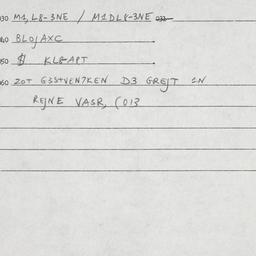 030 M1, L8-3NE / M1DL8-3NE 033
040 BLOJAXC
050 $1 KL8-APT
060 ZOT G3STVEN7KEN D3 GREJT 1N
REJNE VASR, (013